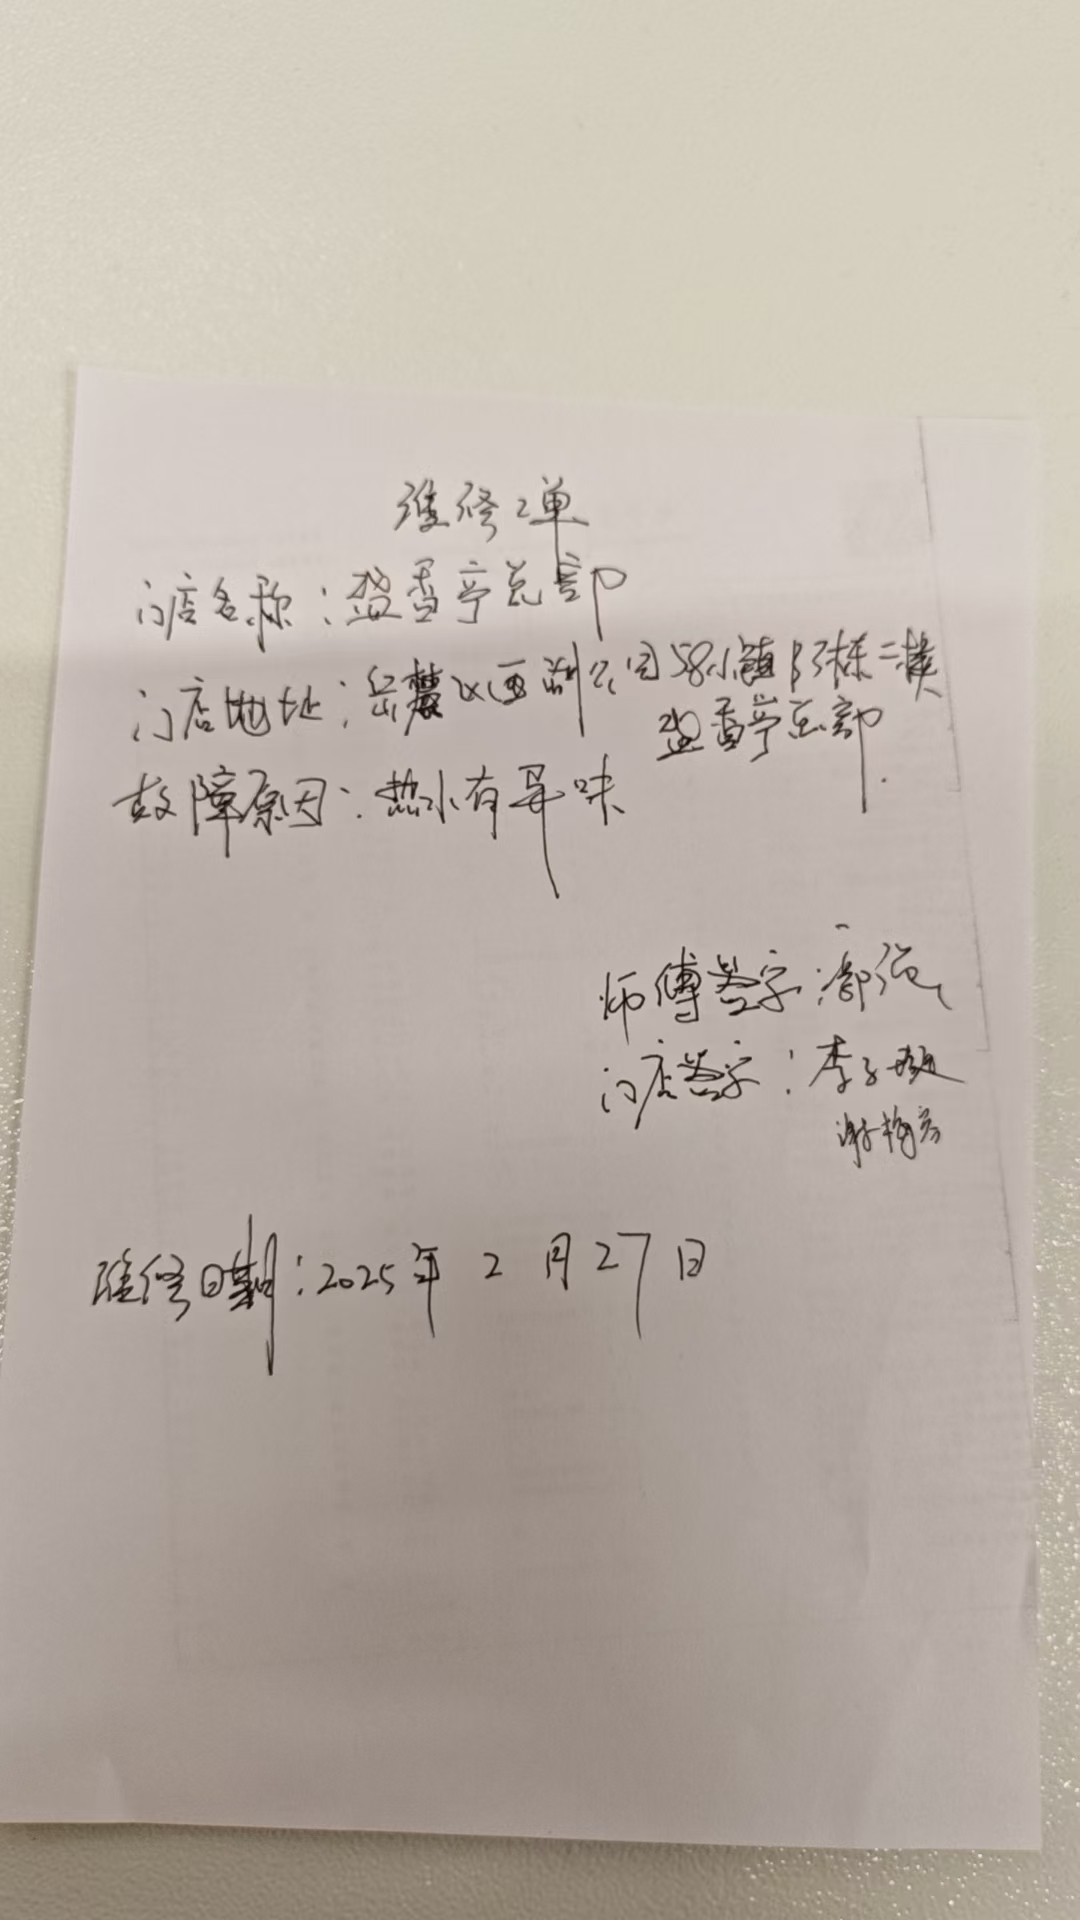 维修工单
门店名称：盛香亭总部
门店地址：岳麓区西湖公园58小镇B3栋二楼
盛香亭总部.
故障原因：热水有异味
师傅签字：
门店签字：李
谢梅芳
维修日期：2025年2月27日